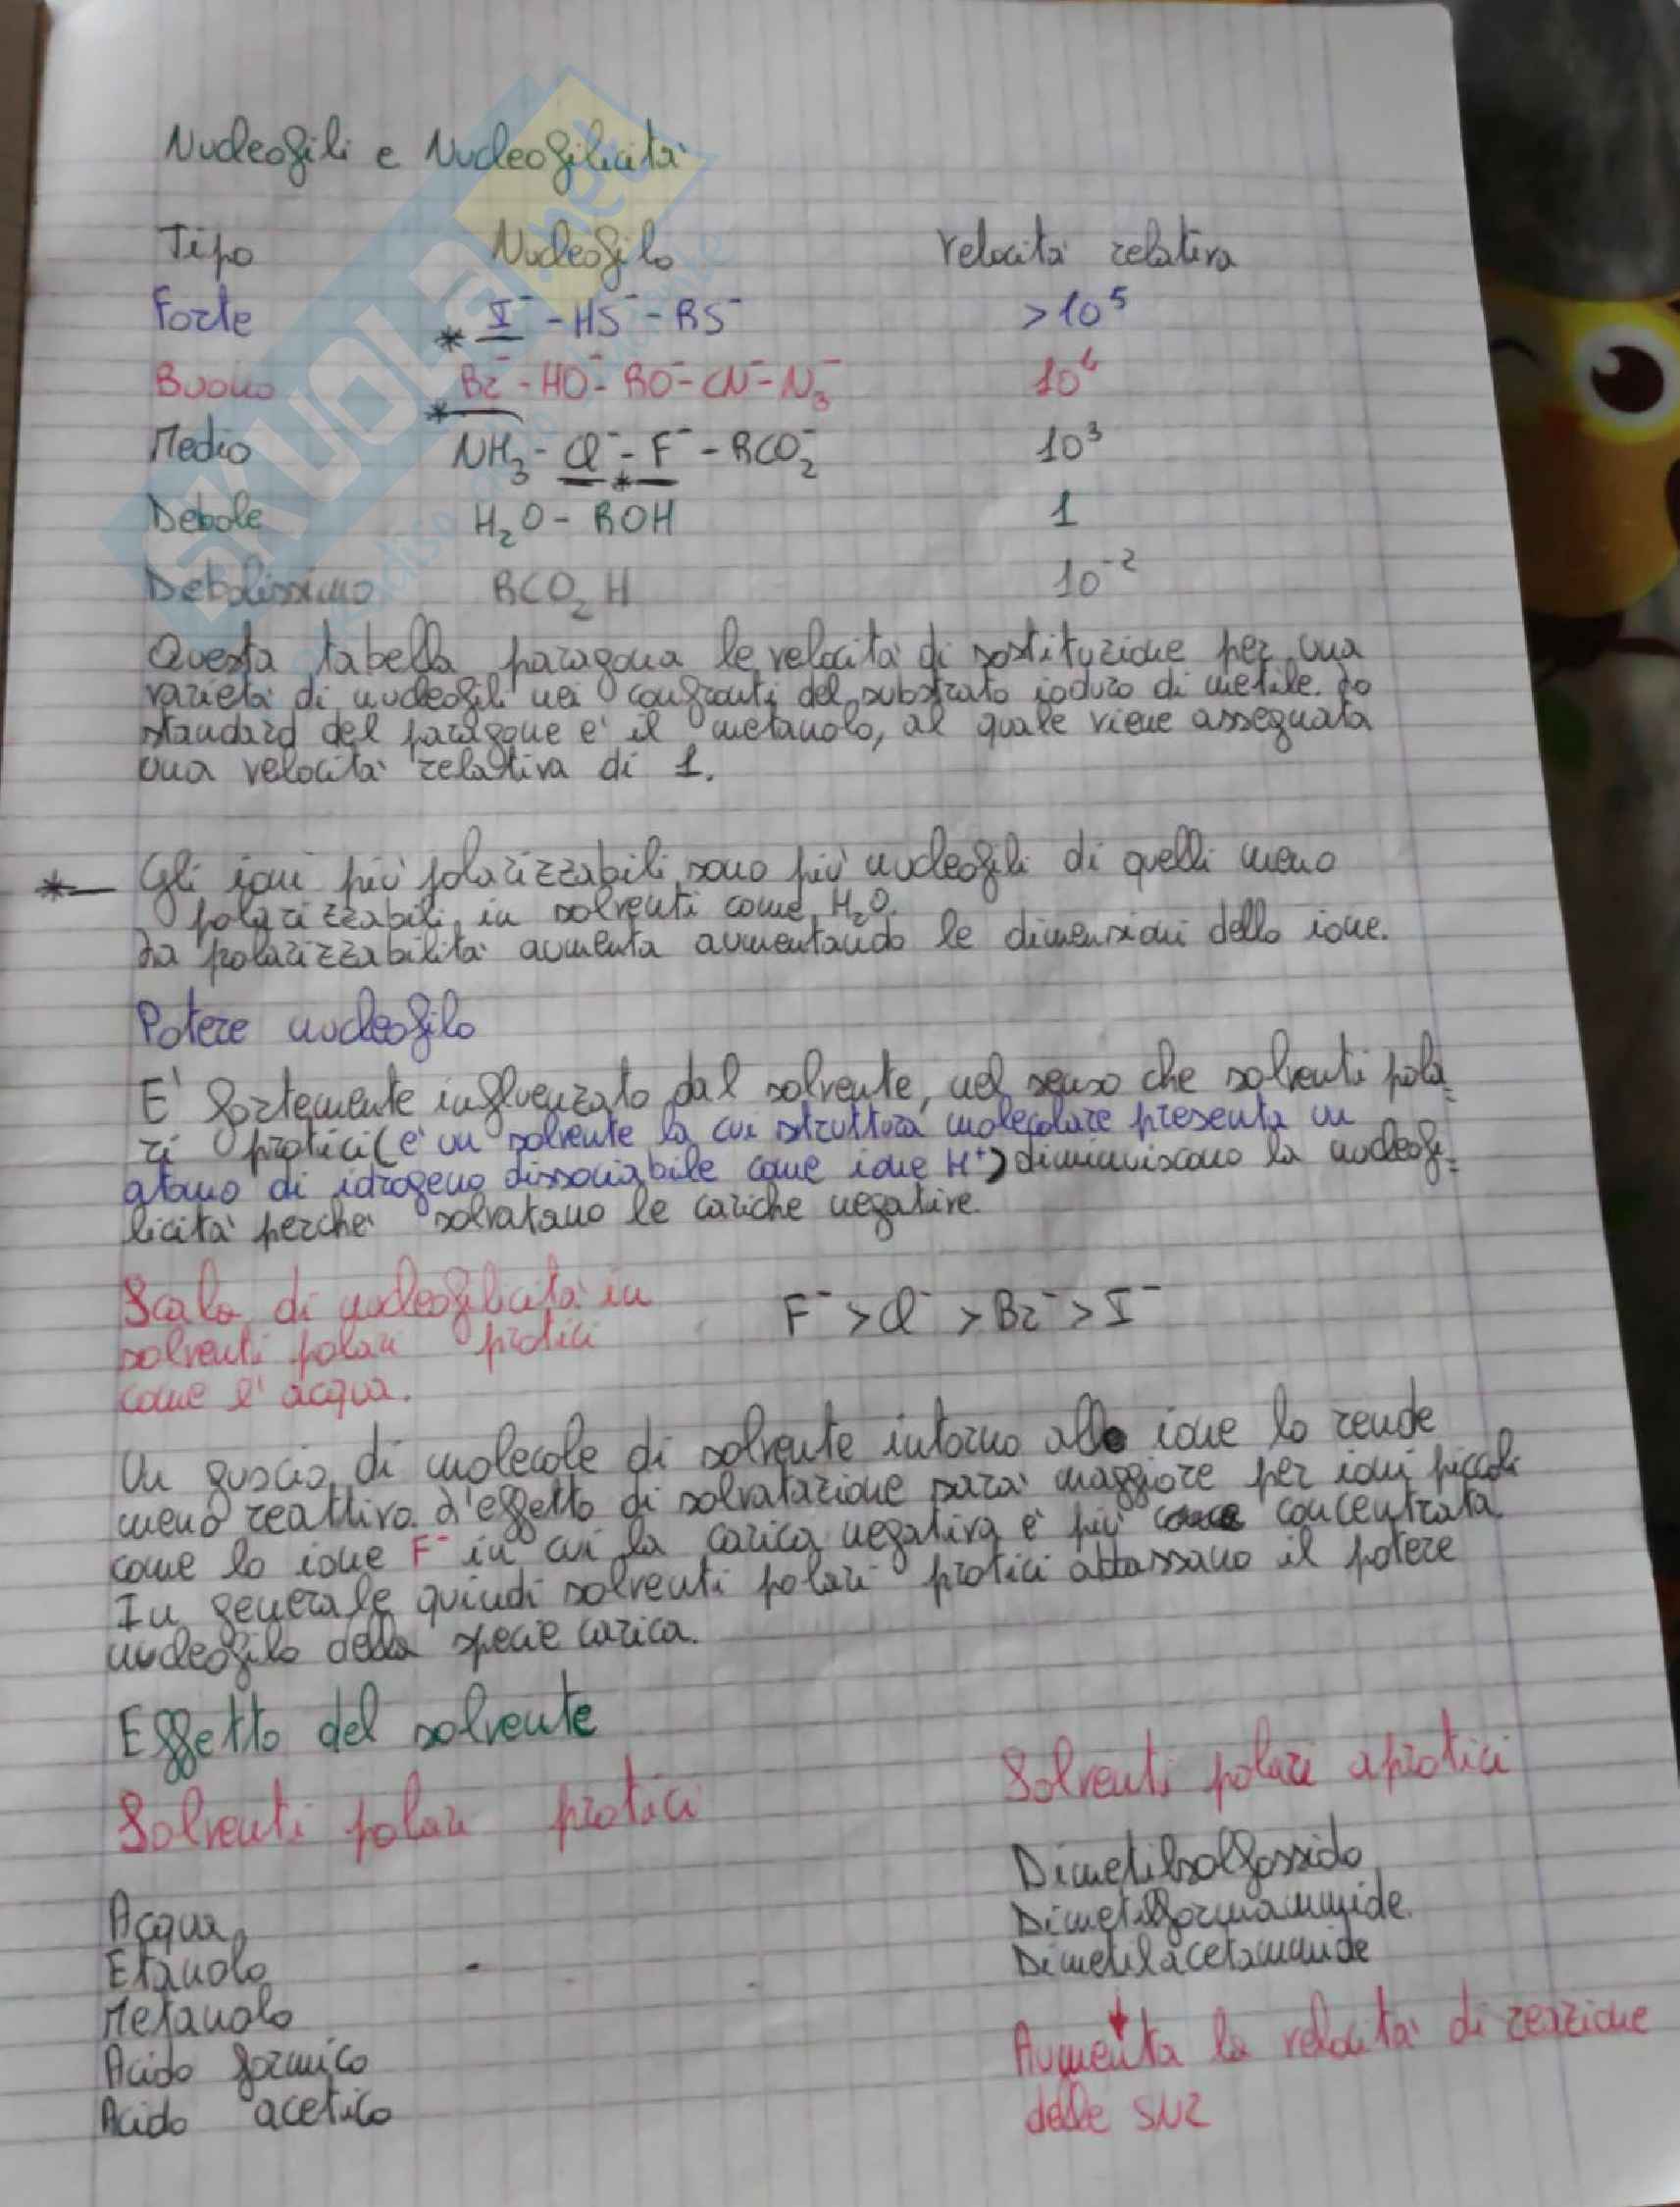 Nucleofili e Nucleofilicità
Tipo Nucleofilo Velocità relativa
Forte * I⁻ - HS⁻ - RS⁻ >10⁵
Buono * Br⁻ - HO⁻ - RO⁻ - CN⁻ - N₃⁻ 10⁴
Medio NH₃ - Cl⁻ - * F⁻ - RCO₂⁻ 10³
Debole H₂O - ROH 1
Debolissimo RCO₂H 10⁻²
Questa tabella paragona le velocità di sostituzione per una
varietà di nucleofili nei confronti del substrato ioduro di metile. Lo
standard del paragone è il metanolo, al quale viene assegnata
una velocità relativa di 1.
*— Gli ioni più polarizzabili sono più nucleofili di quelli meno
polarizzabili in solventi come H₂O.
La polarizzabilità aumenta aumentando le dimensioni dello ione.
Potere nucleofilo
E' fortemente influenzato dal solvente, nel senso che solventi pola=
ri protici (è un solvente la cui struttura molecolare presenta un
atomo di idrogeno dissociabile come ione H⁺) diminuiscono la nucleofi=
licità perché solvatano le cariche negative.
Scala di nucleofilicità in
solventi polari protici
come l'acqua.
F⁻ > Cl⁻ > Br⁻ > I⁻
Un guscio di molecole di solvente intorno allo ione lo rende
meno reattivo. L'effetto di solvatazione sarà maggiore per ioni piccoli
come lo ione F⁻ in cui la carica negativa è più concentrata
In generale quindi solventi polari protici abbassano il potere
nucleofilo della specie carica.
Effetto del solvente
Solventi polari protici Solventi polari aprotici
Acqua Dimetilsolfossido
Etanolo Dimetilformammide
Metanolo Dimetilacetammide
Acido formico Aumenta la velocità di reazione
Acido acetico delle SN2
SKUOLA.net